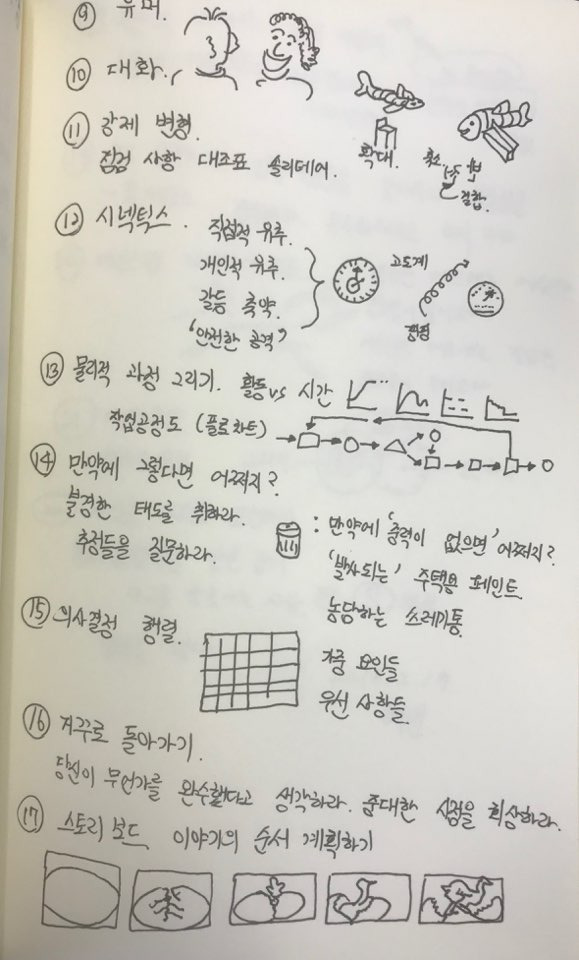 ⑨ 유머.
⑩ 대화.
⑪ 강제 변형.
점검 사항 대조표 솔리테어.
확대.
축소
결합.
⑫ 시넥틱스.
직접적 유추.
개인적 유추.
갈등 축약.
'안전한 공격'
고도계
⑬ 물리적 과정 그리기. 활동 vs 시간
작업공정도 (플로차트)
⑭ 만약에 그렇다면 어쩌지?
불경한 태도를 취하라.
추정들을 질문하라.
: 만약에 '중력이 없으면' 어쩌지?
'발사되는' 주택용 페인트.
농담하는 쓰레기통.
⑮ 의사결정 행렬.
가중 요인들
우선 사항들.
⑯ 거꾸로 돌아가기.
당신이 무언가를 완수했다고 생각하라. 중대한 시점을 회상하라.
⑰ 스토리 보드 이야기의 순서 계획하기